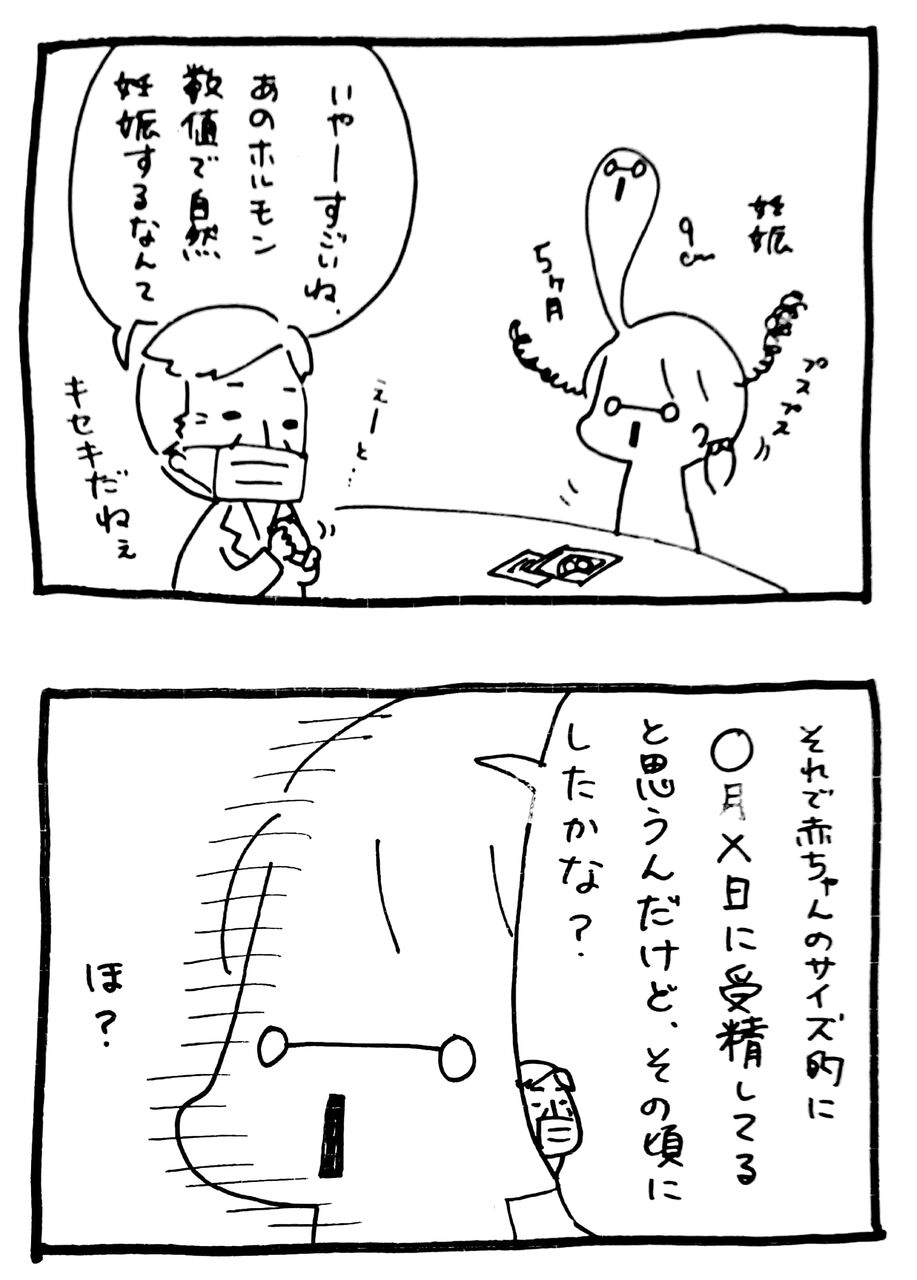 妊娠
9cm
5ヶ月
プスプス
いやーすごいね、
あのホルモン
数値で自然
妊娠するなんて
えーと…
キセキだねぇ
それで赤ちゃんのサイズ的に
○月×日に受精してる
と思うんだけど、その頃に
したかな？
ほ？